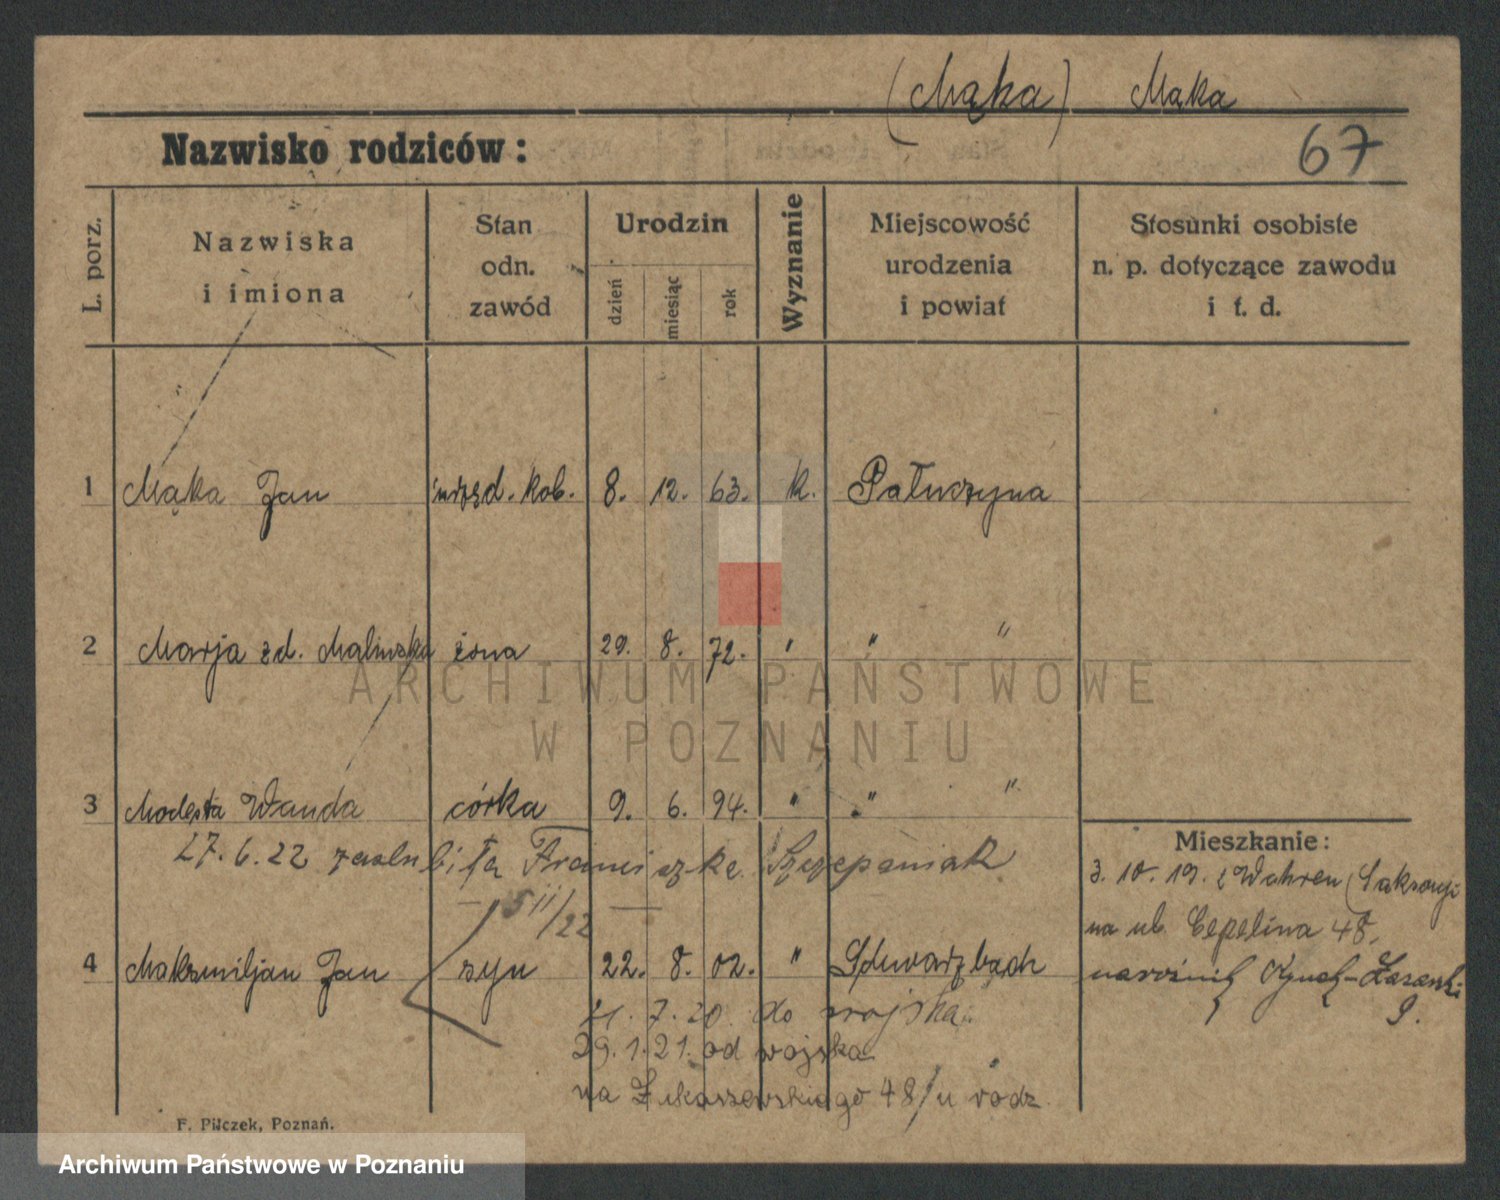 (Mąka) Mąka
Nazwisko rodziców:
67
L. porz.
Nazwiska
i imiona
Stan
odn.
zawód
Urodzin
dzień
miesiąc
rok
Wyznanie
Miejscowość
urodzenia
i powiat
Stosunki osobiste
n. p. dotyczące zawodu
i t. d.
1 Mąka Jan kob. 8. 12. 63. k. Pałuczyna
2 Marja zd. Malinska żona 29. 8. 72. " " "
3 Modesta Wanda córka 9. 6. 94. " " "
27.6.22 zaślubiła Franciszka Szczepaniak
5 11/22
Mieszkanie:
3. 10. 19. z Wahren (Saksonji
na ul. Cepelina 48,
narożnik Rynek-Łazarski
9.
4 Maksmiljan Jan syn 22. 8. 02. " Schwarzbach
11. 7. 20. do wojska.
29. 1. 21. od wojska
na Łukaszewskiego 48/u rodz.
F. Pilczek, Poznań.
ARCHIWUM PAŃSTWOWE
W POZNANIU
Archiwum Państwowe w Poznaniu